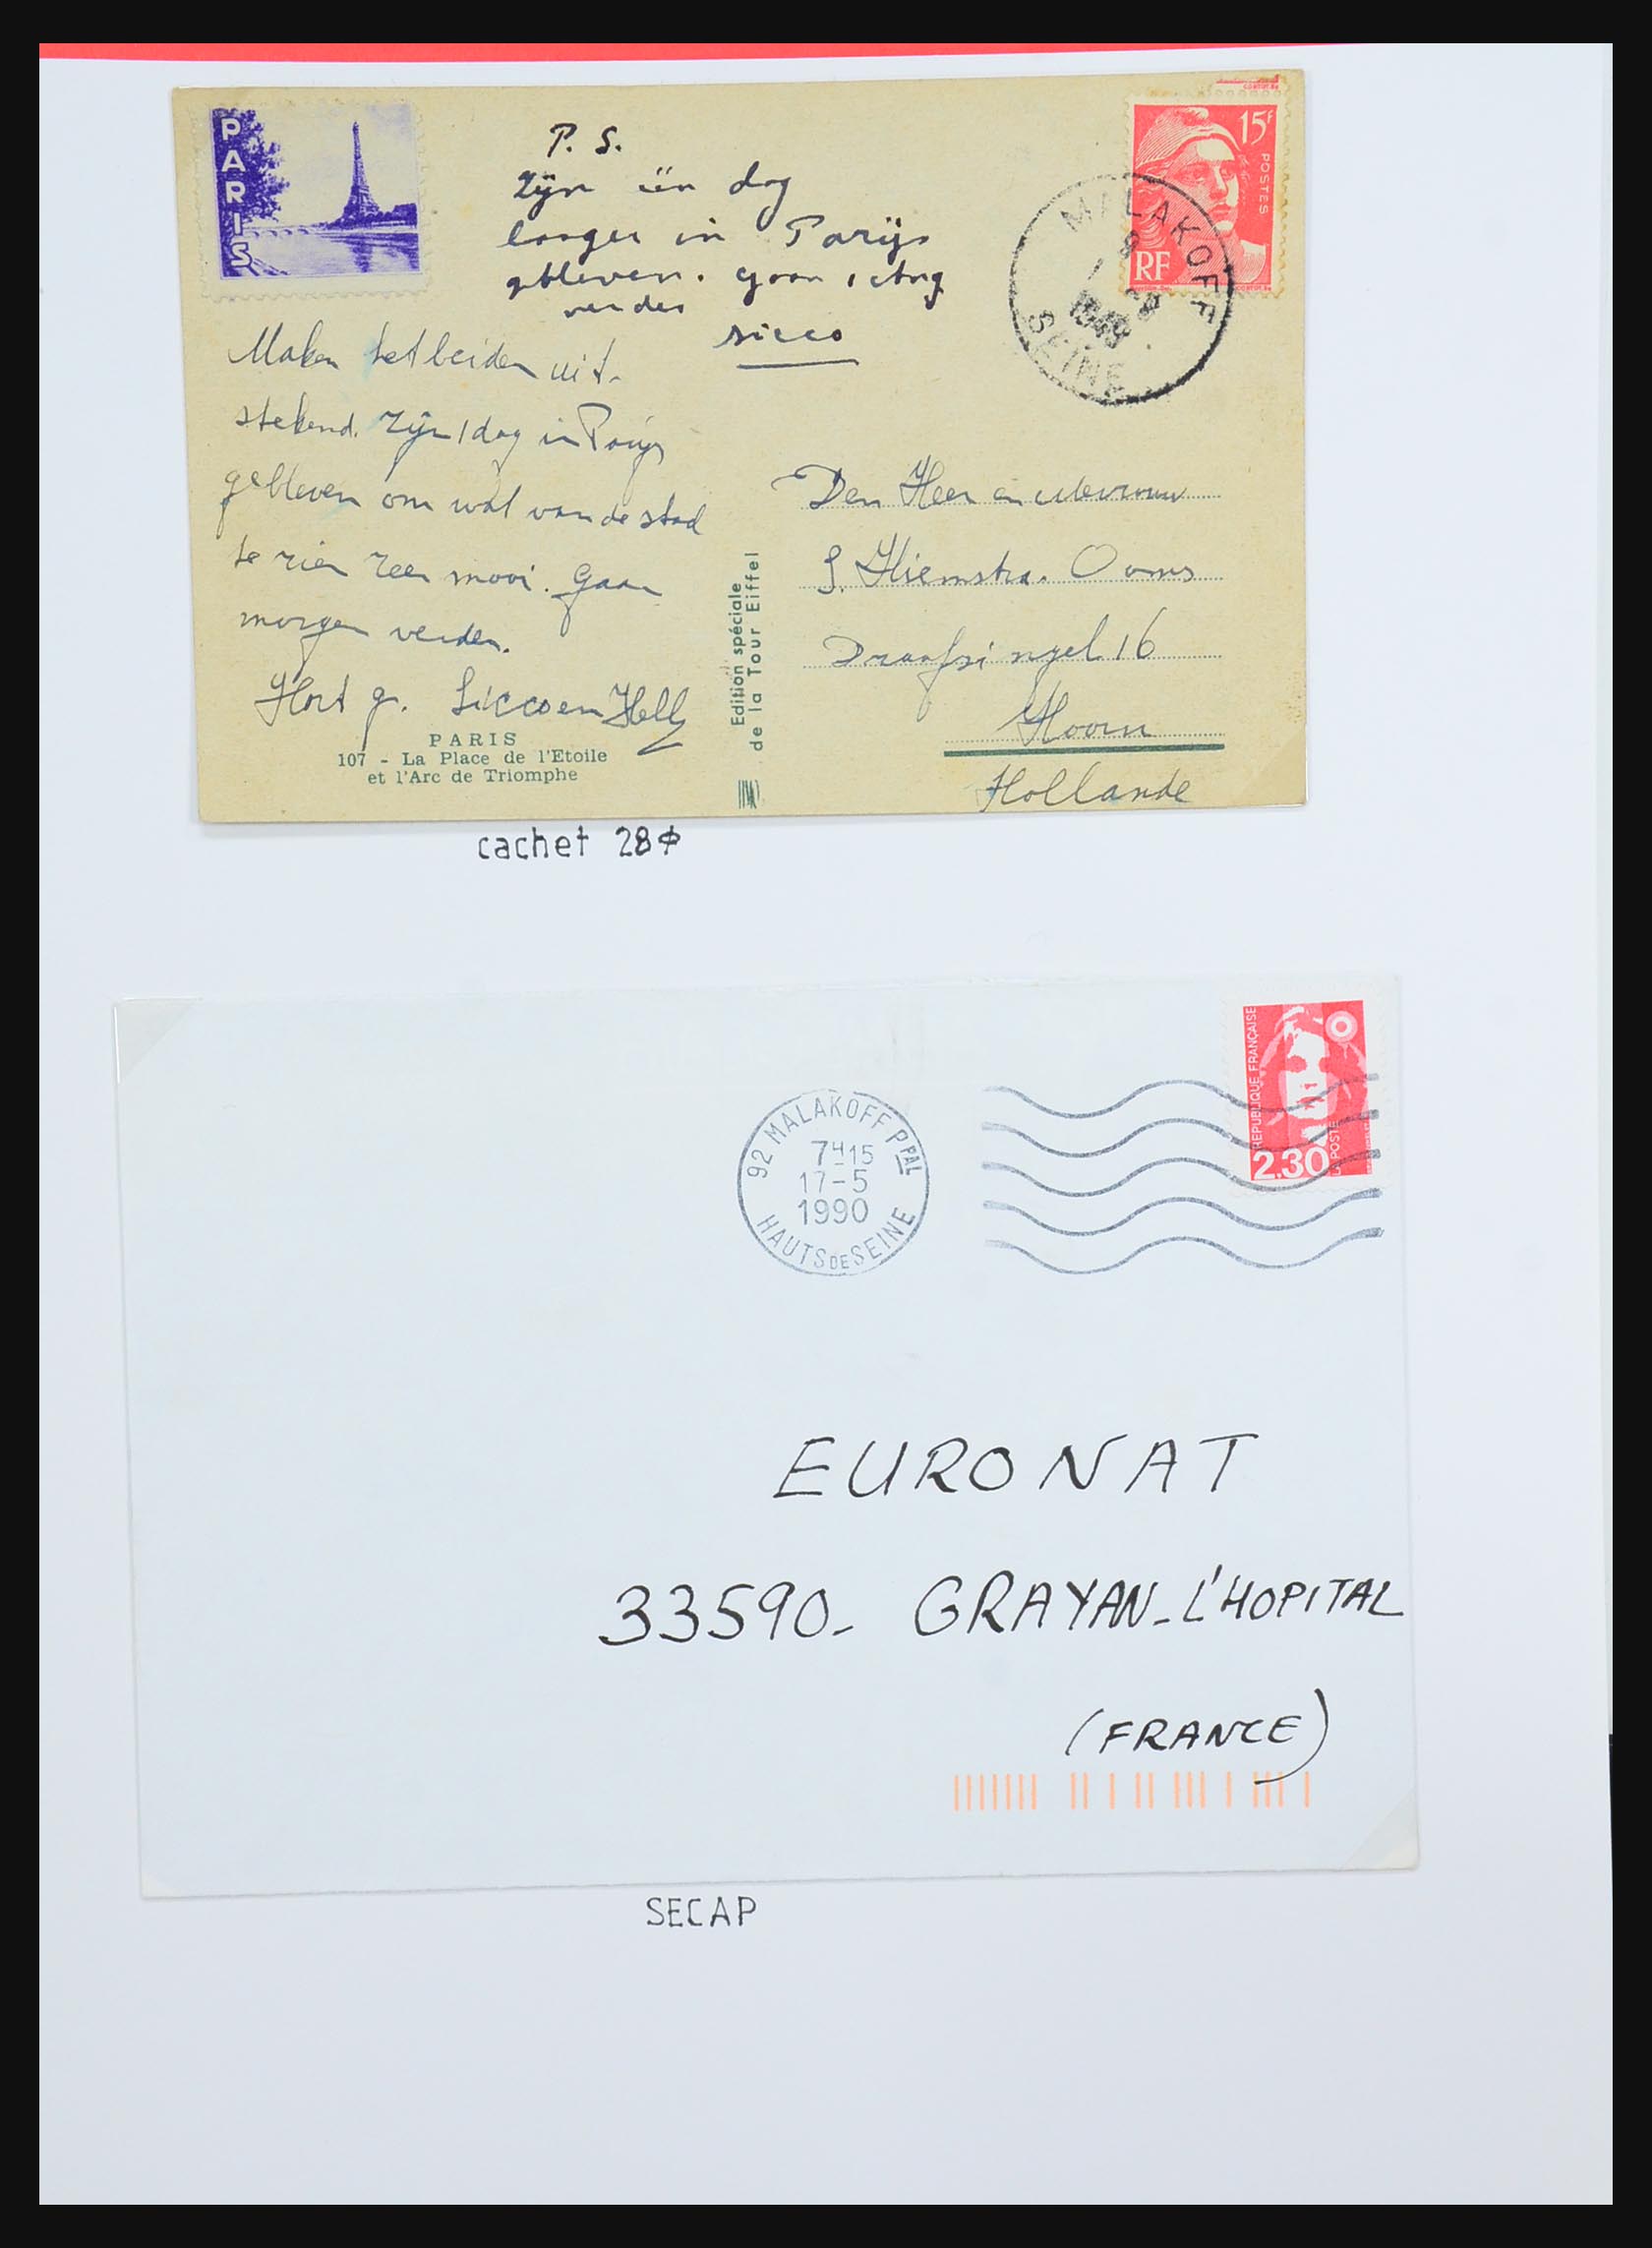 PARIS
P. S.
Zijn één dag
langer in Parijs
gebleven. gaan
verder
Sicco
15F
POSTES
RF
MALAKOFF
8
1949
SEINE
Maken het beiden uit-
stekend. Zijn 1 dag in Parijs
gebleven om wat van de stad
te zien zeer mooi. Gaan
morgen verder.
Hart. gr. Sicco en Helly
PARIS
107 - La Place de l'Etoile
et l'Arc de Triomphe
Edition spéciale
de la Tour Eiffel
Den Heer en Mevrouw
S. Hiemstra. Ooms
Draafsingel 16
Hoorn
Hollande
cachet 28φ
REPUBLIQUE FRANÇAISE
LA POSTE
2.30
92 MALAKOFF PPAL
7H15
17-5
1990
HAUTS DE SEINE
EURONAT
33590- GRAYAN-L'HOPITAL
(FRANCE)
SECAP